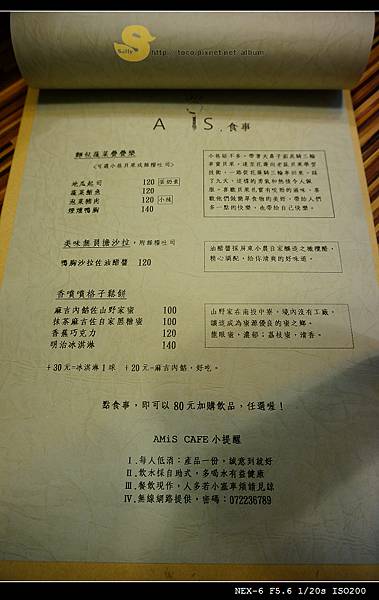 Sally
http://toco.pixnet.net/album
A iS.食事
麵包蔬菜疊疊樂
(可選小爸貝果或雜糧吐司)
地瓜起司 120 蛋奶素
蔬菜鮪魚 120
泡菜豬肉 120 小辣
煙燻鴨胸 140
美味無負擔沙拉，附雜糧吐司
鴨胸沙拉佐油醋醬 120
油醋醬採屏東小農自家釀造之橄欖醋，
精心調配，給你清爽的好味道。
香噴噴格子鬆餅
麻吉內餡佐山野家蜜 100
抹茶麻吉佐自家黑糖蜜 100
香蕉巧克力 120
明治冰淇淋 140
山野家在南投中寮，境內沒有工廠，
讓這成為蜜源優良的蜜之鄉。
龍眼蜜，濃郁；荔枝蜜，清香。
+30元=冰淇淋1球 +20元=麻吉內餡，好吃。
點食事，即可以80元加購飲品，任選啦！
AMiS CAFE 小提醒
I.每人低消：產品一份，誠意到就好
II.飲水採自助式，多喝水有益健康
III.餐飲現作，人多若小塞車煩請見諒
IV.無線網路提供，密碼：072236789
NEX-6 F5.6 1/20s ISO200